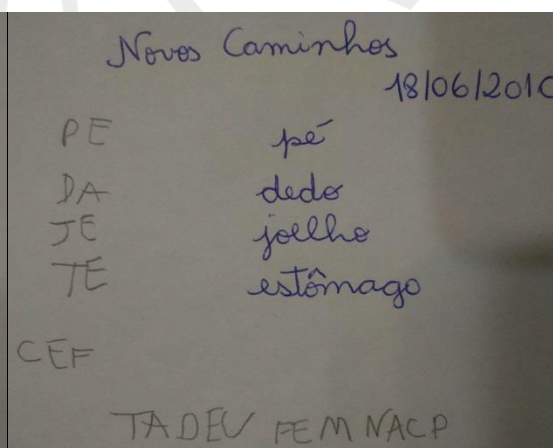 Novos Caminhos
18/06/2010
PE pé
DA dedo
JE joelho
TE estômago
CEF
TADEU FEMNACP